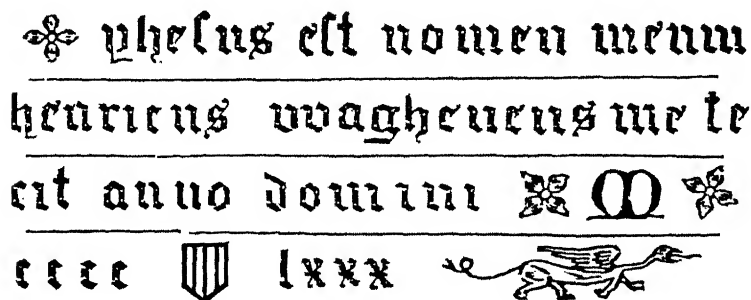 yheſus eſt nomen meum
henricus vvagheuens me fe
cit anno domini M
cccc lxxx